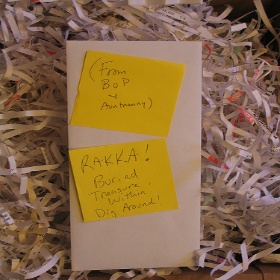 (From
BOP
+
RAKKA!
Buried
Treasure
Within!
Dig Around!